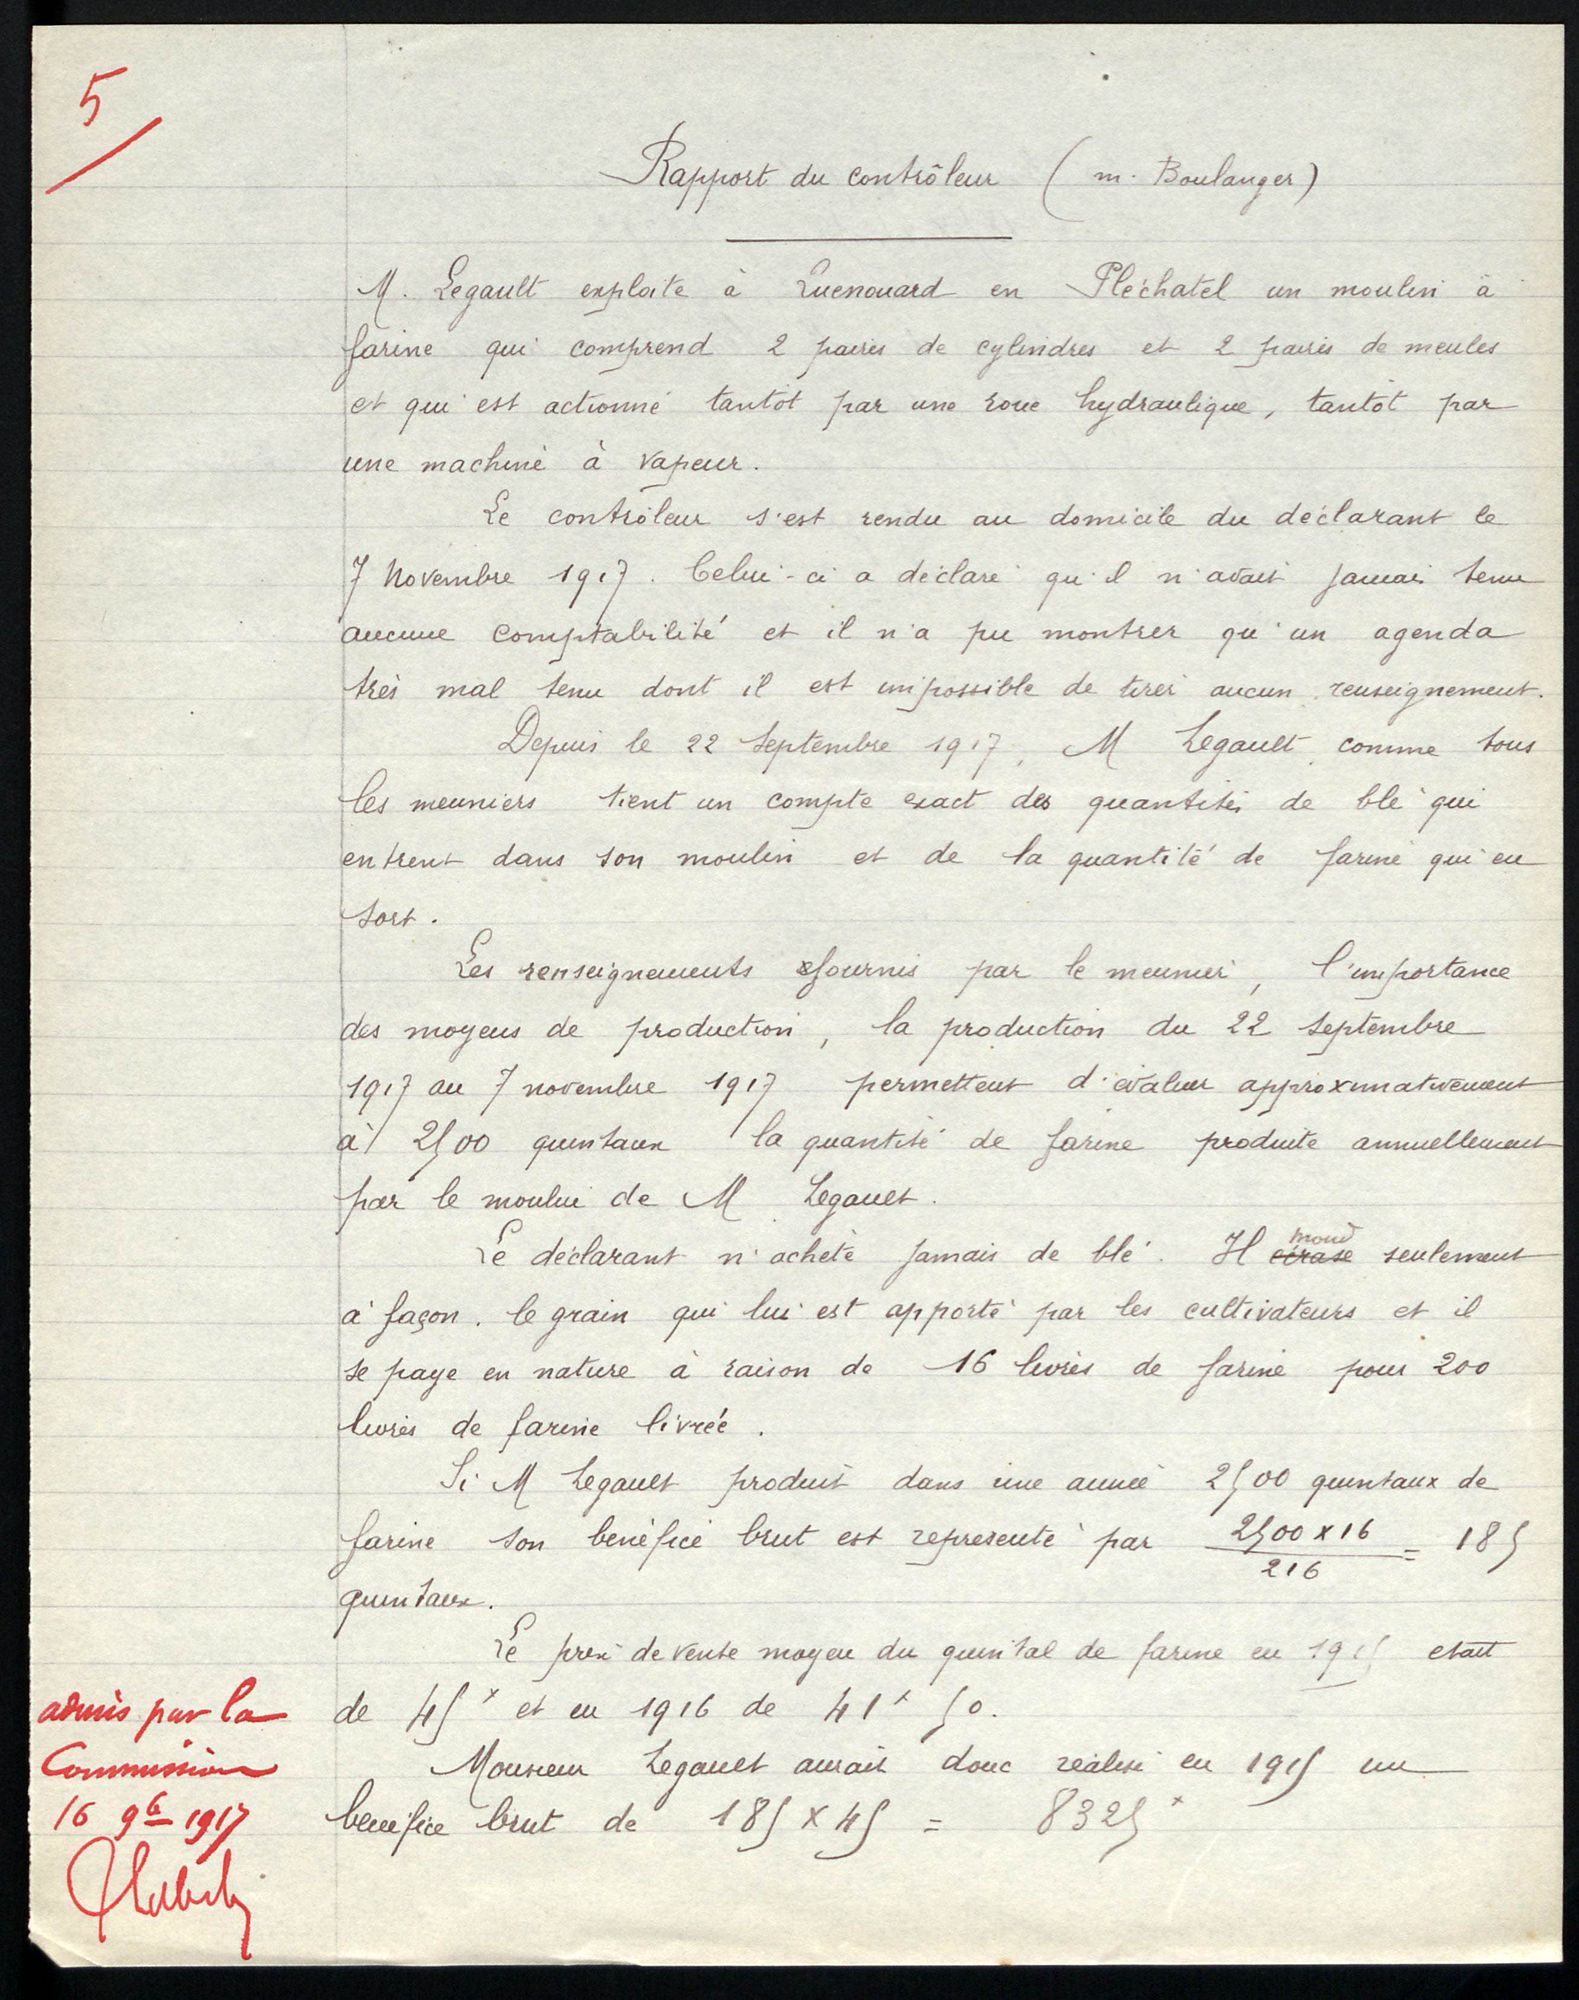 5
Rapport du contrôleur ( m. Boulanger)
M. Legault exploite à Luenouard en Pléchatel un moulin à
farine qui comprend 2 paires de cylindres et 2 paires de meules
et qui est actionné tantôt par une roue hydraulique, tantôt par
une machine à vapeur.
Le contrôleur s'est rendu au domicile du déclarant le
7 Novembre 1917. Celui-ci a déclaré qu'il n'avait jamais tenu
aucune comptabilité et il n'a pu montrer qu'un agenda
très mal tenu dont il est impossible de tirer aucun renseignement.
Depuis le 22 Septembre 1917, M Legault comme tous
les meuniers tient un compte exact des quantités de blé qui
entrent dans son moulin et de la quantité de farine qui en
sort.
Les renseignements fournis par le meunier, l'importance
des moyens de production, la production du 22 Septembre
1917 au 7 novembre 1917 permettent d'évaluer approximativement
à 2500 quintaux la quantité de farine produite annuellement
par le moulin de M Legault.
Le déclarant n'achète jamais de blé. Il écrase moud seulement
à façon. le grain qui lui est apporté par les cultivateurs et il
se paye en nature à raison de 16 livres de farine pour 200
livres de farine livrée.
Si M Legault produit dans une année 2500 quintaux de
farine son bénéfice brut est représenté par 2500 x 16 / 216 = 185
quintaux.
Le prix de vente moyen du quintal de farine en 1915 était
de 45 f et en 1916 de 41 f 50.
Monsieur Legault aurait donc réalisé en 1915 un
bénéfice brut de 185 x 45 = 8325 f
admis par la
Commission
16 9b 1917